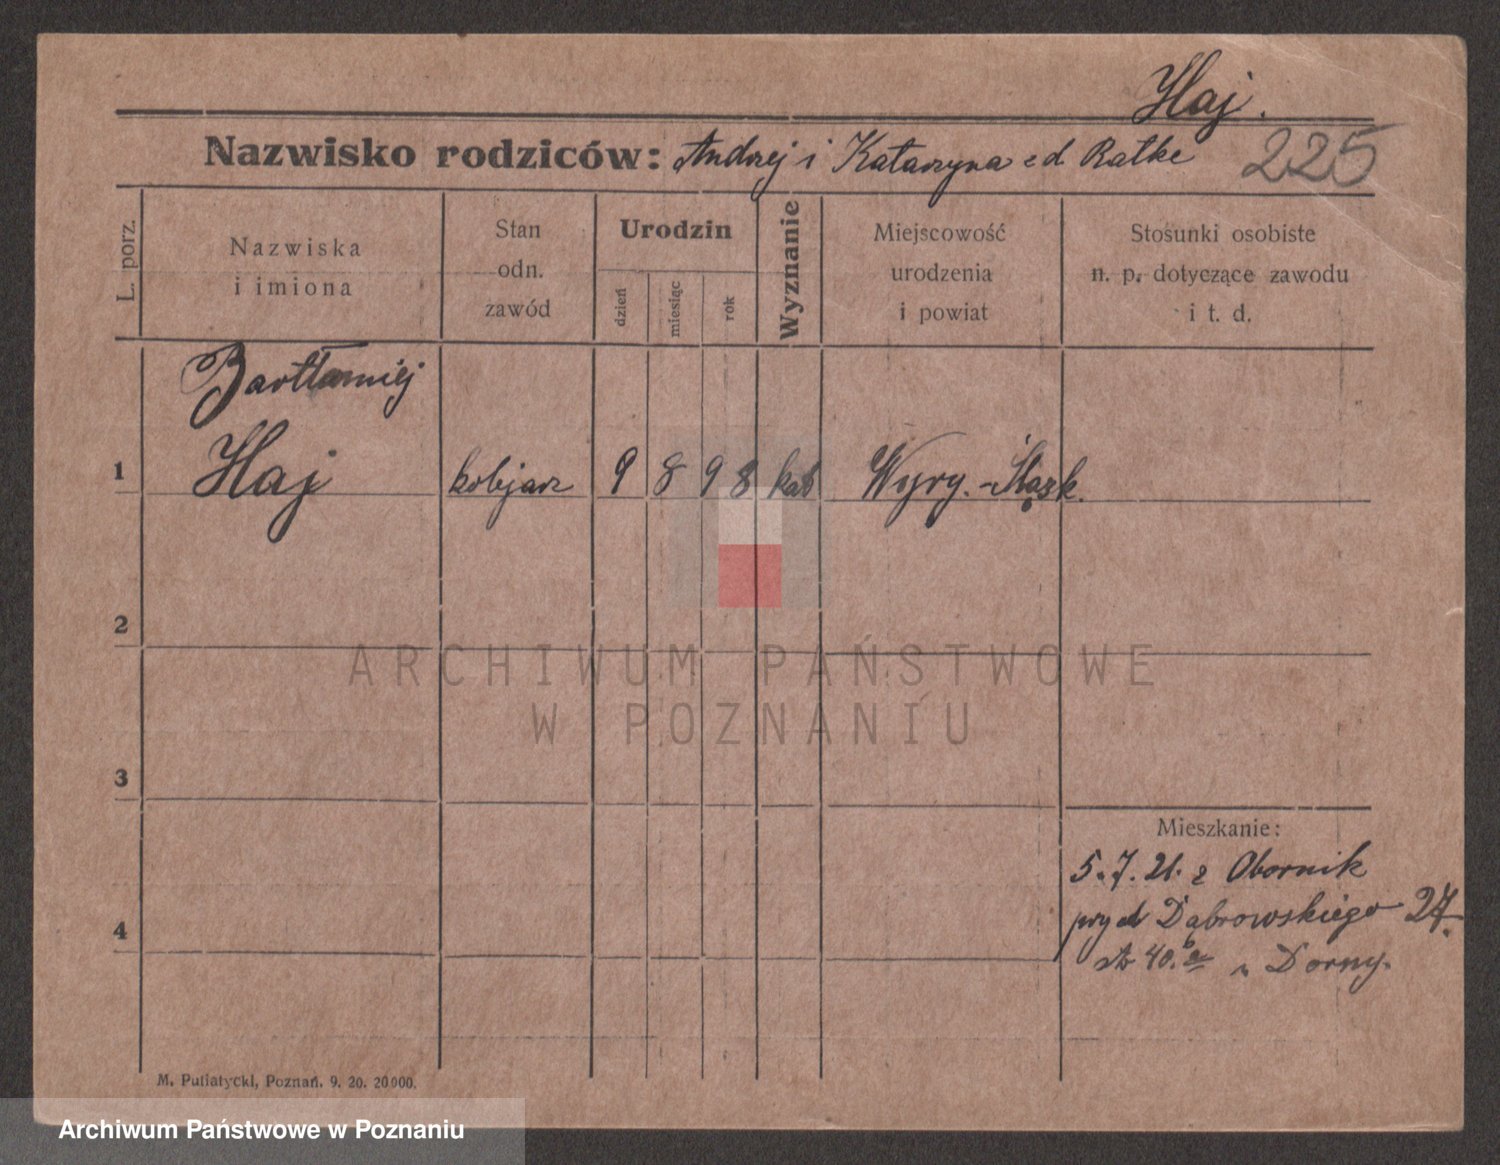 Haj.
Nazwisko rodziców: Andrzej i Katarzyna z d Ratke
225
L. porz.
Nazwiska
i imiona
Stan
odn.
zawód
Urodzin
dzień
miesiąc
rok
Wyznanie
Miejscowość
urodzenia
i powiat
Stosunki osobiste
n. p. dotyczące zawodu
i t. d.
Bartłomiej
1 Haj kolejarz 9 8 98 kat Wyry. - Śląsk.
2
ARCHIWUM PAŃSTWOWE
W POZNANIU
3
Mieszkanie:
5.7.21. z Obornik
Dąbrowskiego 27.
4
40. u Dorny.
M. Putiatycki, Poznań. 9. 20. 20000.
Archiwum Państwowe w Poznaniu